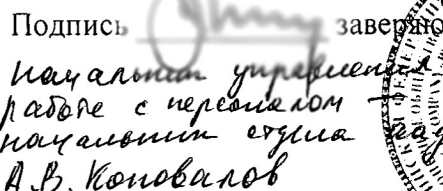 Подпись заверяю
Начальник управления
работе с персоналом –
начальник отдела
А.В. Коновалов